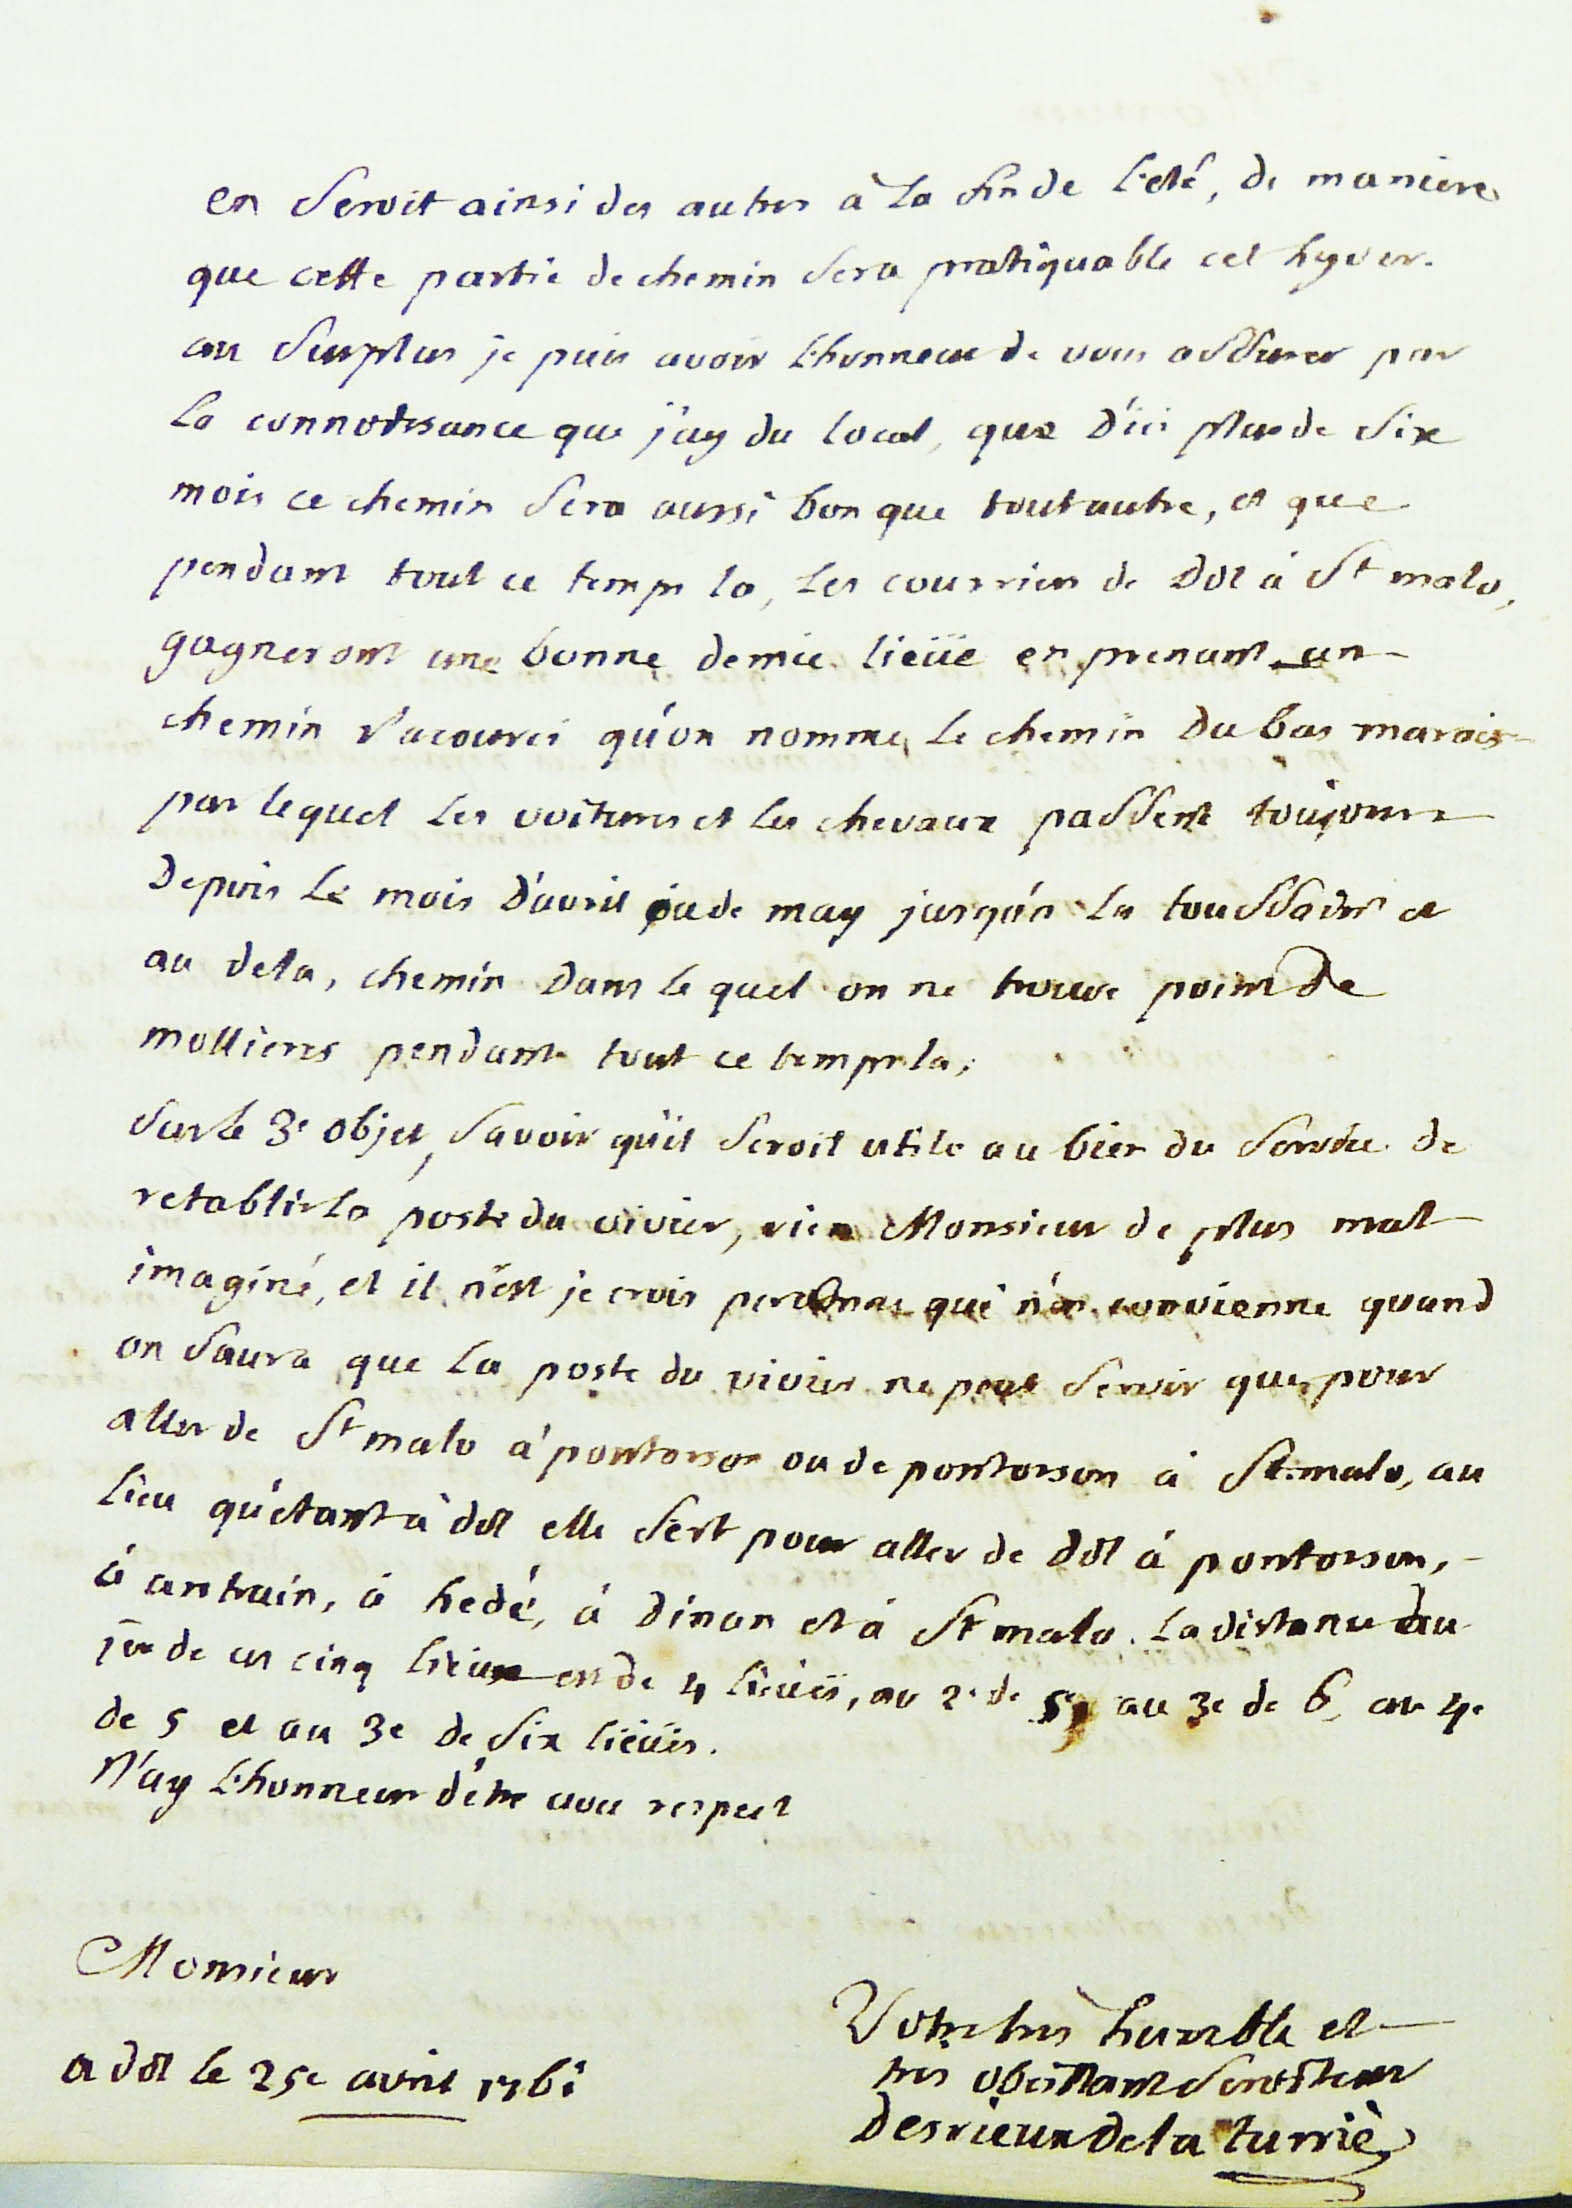 en seroit ainsi des autres à la fin de l'eté, de maniere
que cette partie de chemin sera pratiquable cet hyver.
au surplus je puis avoir l'honneur de vous assurer par
la connoissance que j'ay du local, que d'ici plus de six
mois ce chemin sera aussi bon que tout autre, et que
pendant tout ce temps la, les courriers de Dol à St malo,
gagneront une bonne demie lieüe en prenant un
chemin racourci qu'on nomme le chemin du bas marais
par lequel les voitures et les chevaux passent toujours
Depuis le mois d'avril ou de may jusqu'à la toussaint et
au dela, chemin dans le quel on ne trouve point de
mollieres pendant tout ce temps la;
sur le 3e objet, savoir qu'il seroit utile au bien du service de
retablir la poste du vivier, rien Monsieur de plus mal
imaginé, et il n'est je crois personne qui n'en convienne quand
on saura que la poste du vivier ne peut servir que pour
aller de St malo à pontorson ou de pontorson à St malo, au
lieu qu'etant à dol elle sert pour aller de dol à pontorson,
à antrain, à hedé, à dinan et à St malo. La distance du
1er de ces cinq lieux est de 4 lieües, au 2e de 5, au 3e de 6, au 4e
de 5 et au 3e de six lieües.
J'ay l'honneur d'être avec respect
Monsieur
a dol le 25e avril 1761
Votre tres humble et
tres obeissant serviteur
Desrieux de la turrie